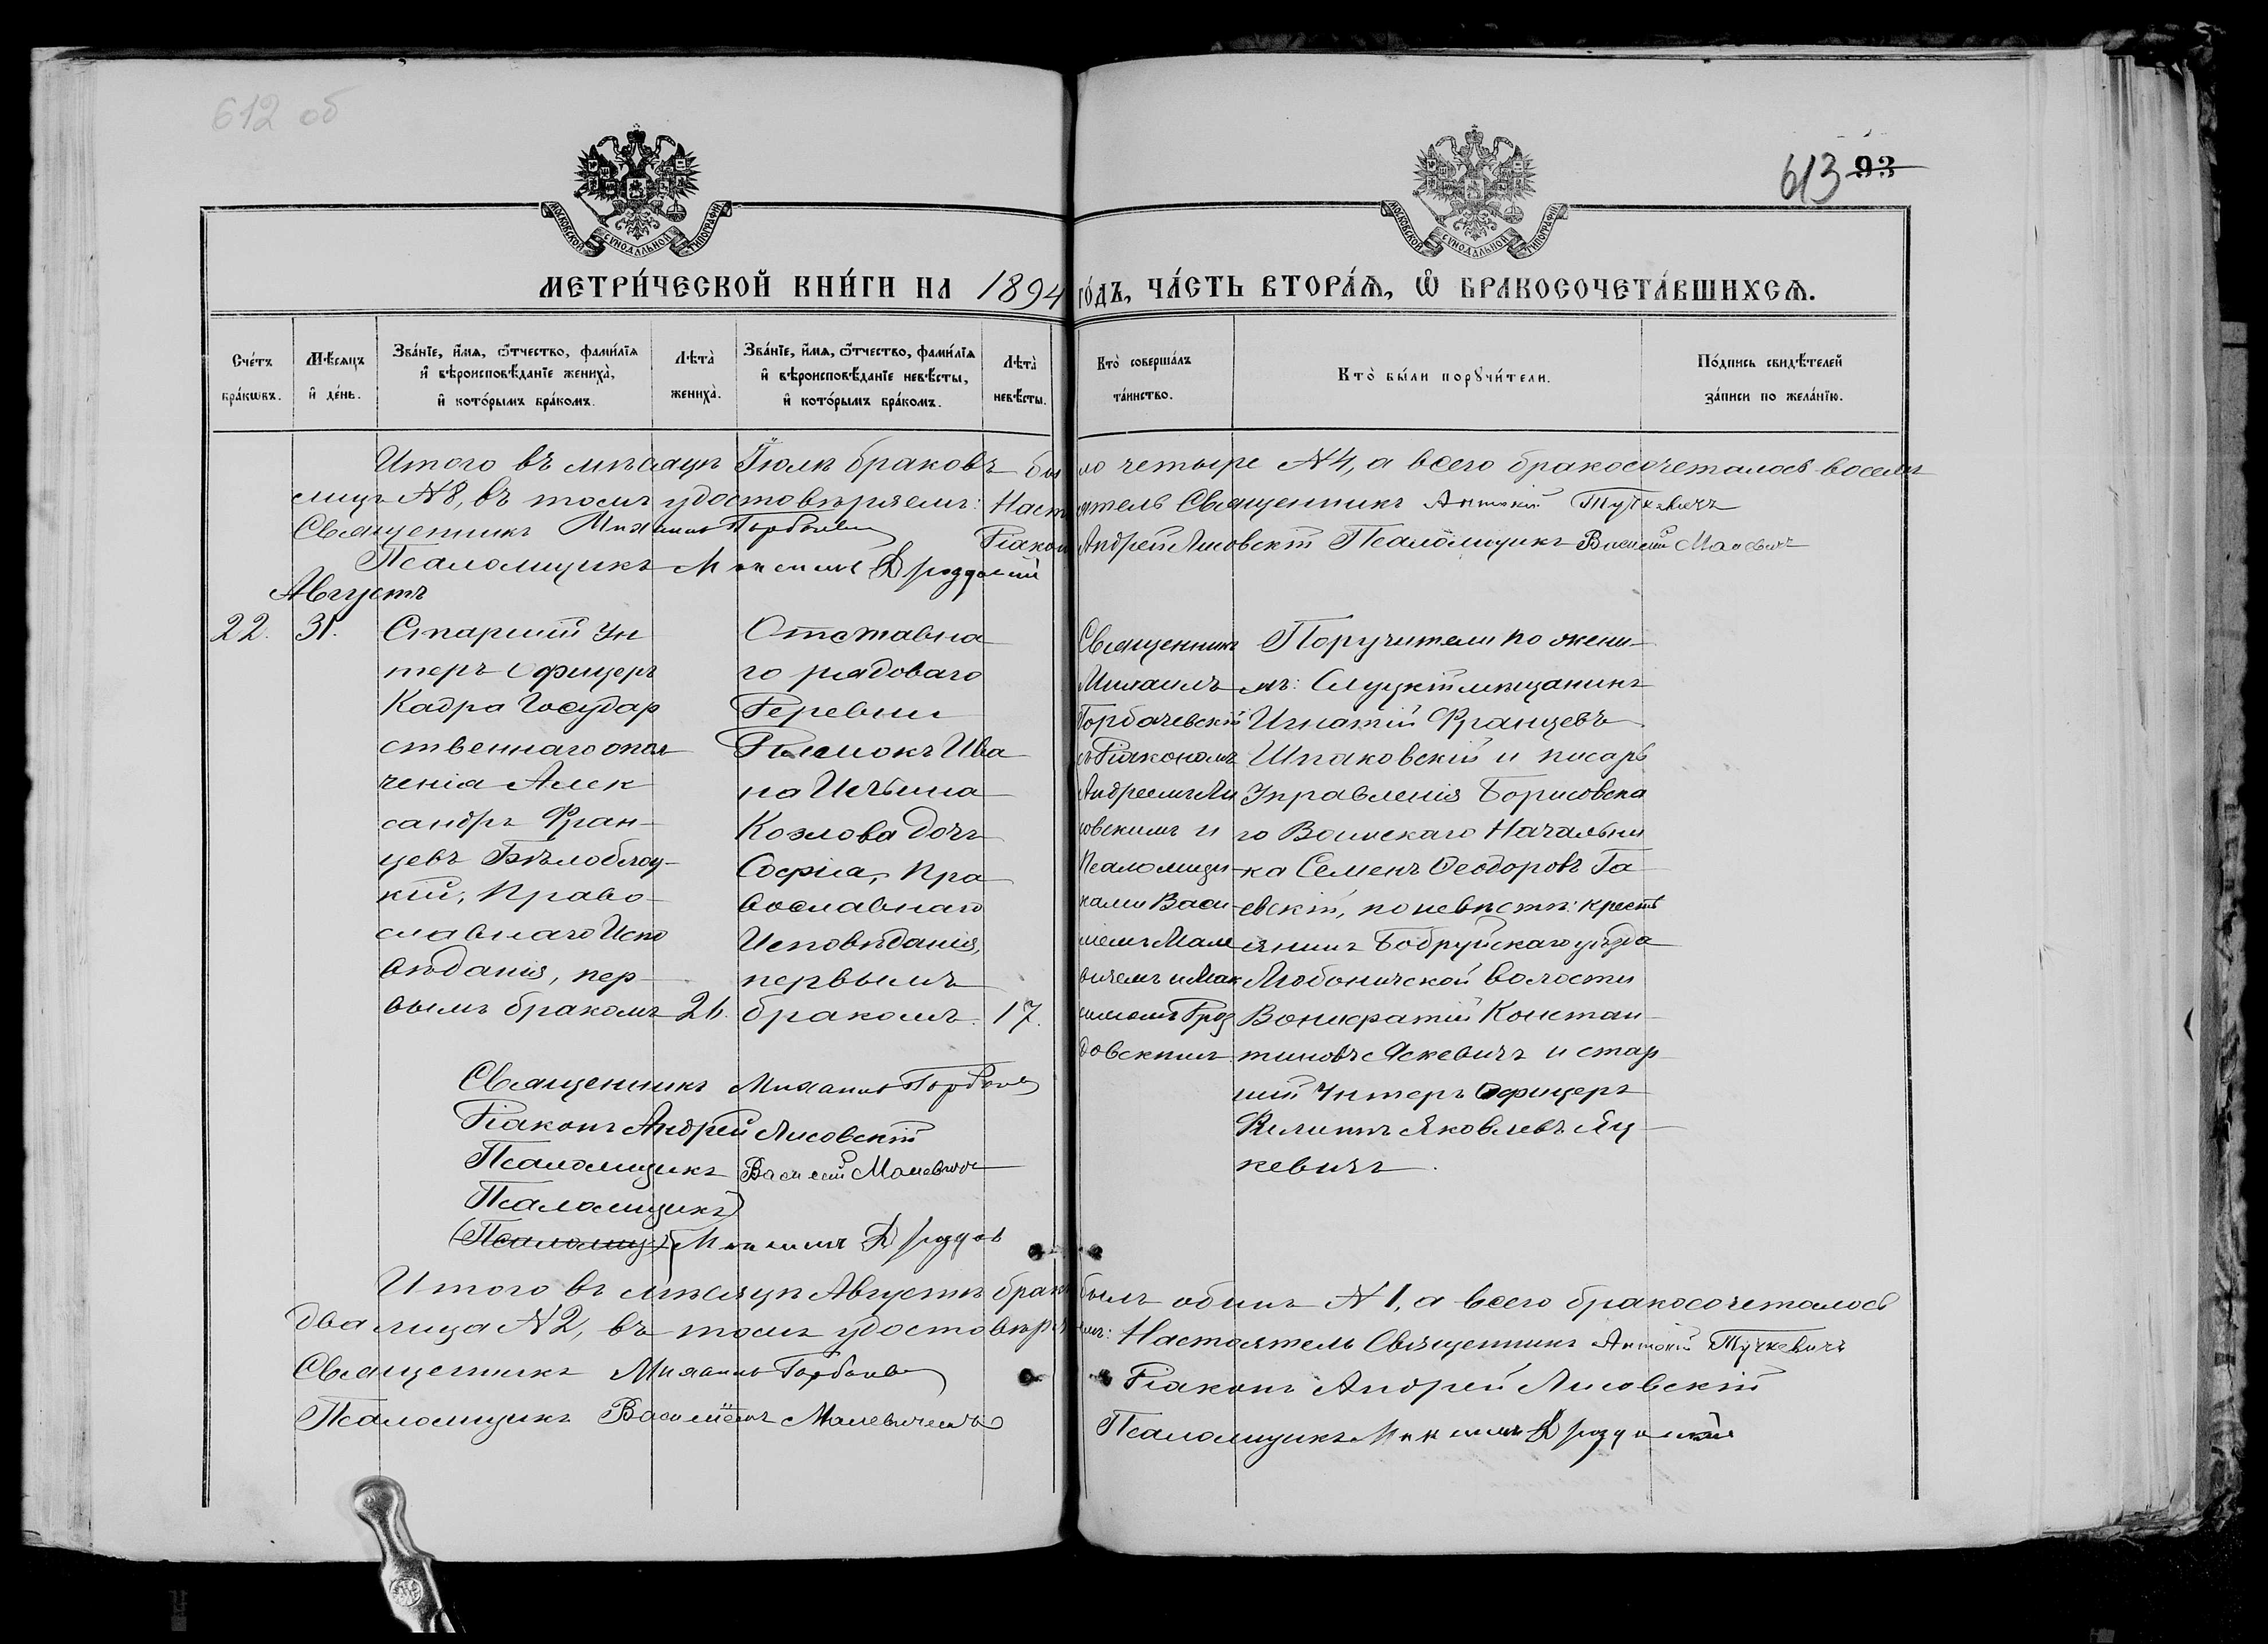 612 об
613 93
МОСКОВСКОЙ СУНОДАЛЬНОЙ ТИПОГРАФІИ
МОСКОВСКОЙ СУНОДАЛЬНОЙ ТИПОГРАФІИ
МЕТРИ́ЧЕСКОЙ КНИ́ГИ НА 1894 ГО́ДЪ, ЧА́СТЬ ВТОРА́Ѧ, Ѡ҆ БРАКОСОЧЕТА́ВШИХСѦ.
Сче́тъ бра́кѡвъ.
Мѣ́сяцъ и҆ де́нь.
Зва́нїе, и҆́мѧ, ѻ҆́тчество, фами́лїѧ
и҆ вѣроисповѣ́данїе жениха̀,
и҆ кото́рымъ бра́комъ.
Лѣта̀ жениха̀.
Зва́нїе, и҆́мѧ, ѻ҆́тчество, фами́лїѧ
и҆ вѣроисповѣ́данїе невѣ́сты,
и҆ кото́рымъ бра́комъ.
Лѣта̀ невѣ́сты.
Кто̀ соверша́лъ та́инство.
Кто̀ бы́ли порꙋчи́тели.
По́дпись свидѣ́телей за́писи по жела́нїю.
Итого въ мѣсяцѣ Іюлѣ браковъ было четыре № 4, а всего бракосочеталось восемь
лицъ № 8, въ томъ удостовѣряемъ: Настоятель Священникъ Антоній Тучкевичъ
Священникъ Михаилъ Діаконъ Андрей Лисовскій Псаломщикъ Василій Малевичъ
Псаломщикъ Максимъ Дроздовскій
Августъ
22. 31.
Старшій Ун
теръ Офицеръ
Кадра Государ
ственнаго опол
ченія Алек
сандръ Фран-
цевъ Бѣлоблоц-
кій, Право-
славнаго Испо
вѣданія, пер-
вымъ бракомъ 26.
Отставна
го рядоваго
Деревни
Ивана
Козлова дочь
Софія, Пра
вославнаго
Исповѣданія,
первымъ
бракомъ. 17.
Священникъ
Михаилъ
Горбачевскій
съ Діакономъ
Андреемъ Ли
совскимъ и
Псаломщи
ками Васи
ліемъ Мале
вичемъ и Мак
симомъ Дроз
довскимъ
Поручители по жени-
хѣ: Слуцкій мѣщанинъ
Игнатій Францевъ
Шпаковскій и писарь
Управленія Борисовска
го Воинскаго Начальни
ка Семенъ Ѳеодоровъ Га-
евскій, по невѣстѣ: кресть
янинъ Бобруйскаго уѣзда
Любоничской волости
Константиновъ Яскевичъ и стар
шій Унтеръ Офицеръ
Филиппъ Яковлевъ Яц-
кевичъ.
Священникъ Михаилъ
Діаконъ Андрей Лисовскій
Псаломщикъ Василій Малевичъ
Псаломщикъ
(Псаломщ) Максимъ Дроздов
Итого въ мѣсяцѣ Августѣ бракъ былъ одинъ № 1, а всего бракосочеталось
два лица № 2, въ томъ удостовѣряемъ: Настоятель Священникъ Антоній Тучкевичъ
Священникъ Михаилъ Діаконъ Андрей Лисовскій
Псаломщикъ Василіемъ Малевичемъ Псаломщикъ Максимъ Дроздовскій